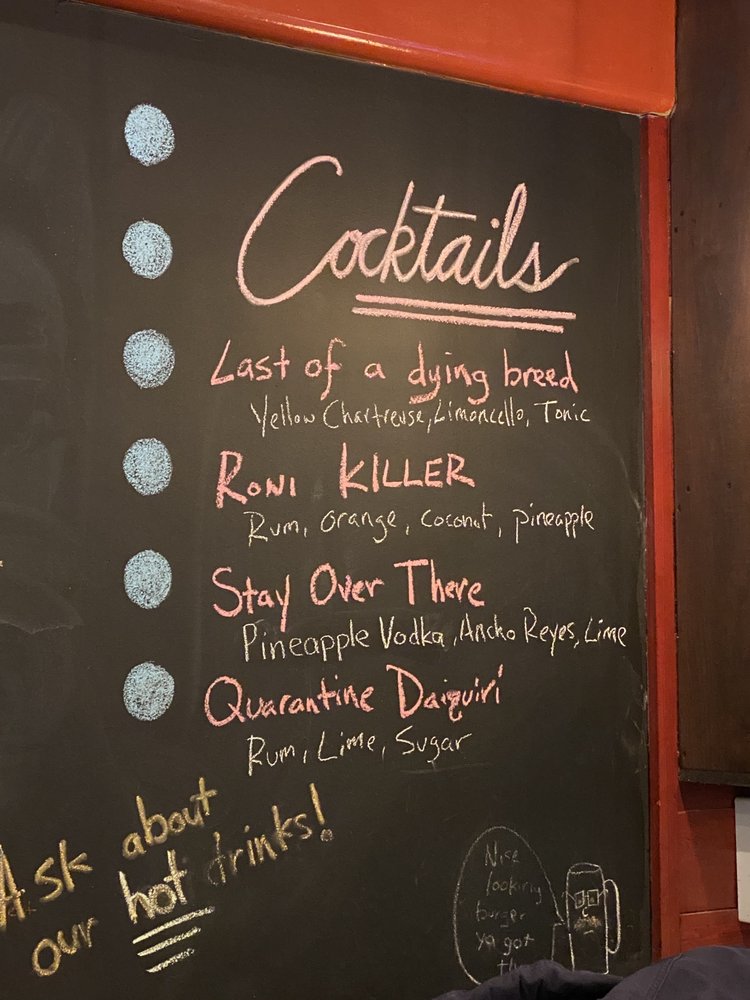 Cocktails
Last of a dying breed
Yellow Chartreuse, Limoncello, Tonic
RONI KILLER
Rum, orange, coconut, pineapple
Stay Over There
Pineapple Vodka, Ancho Reyes, Lime
Quarantine Daiquiri
Rum, Lime, Sugar
Ask about
our hot drinks!
Nise
looking
burger
ya got